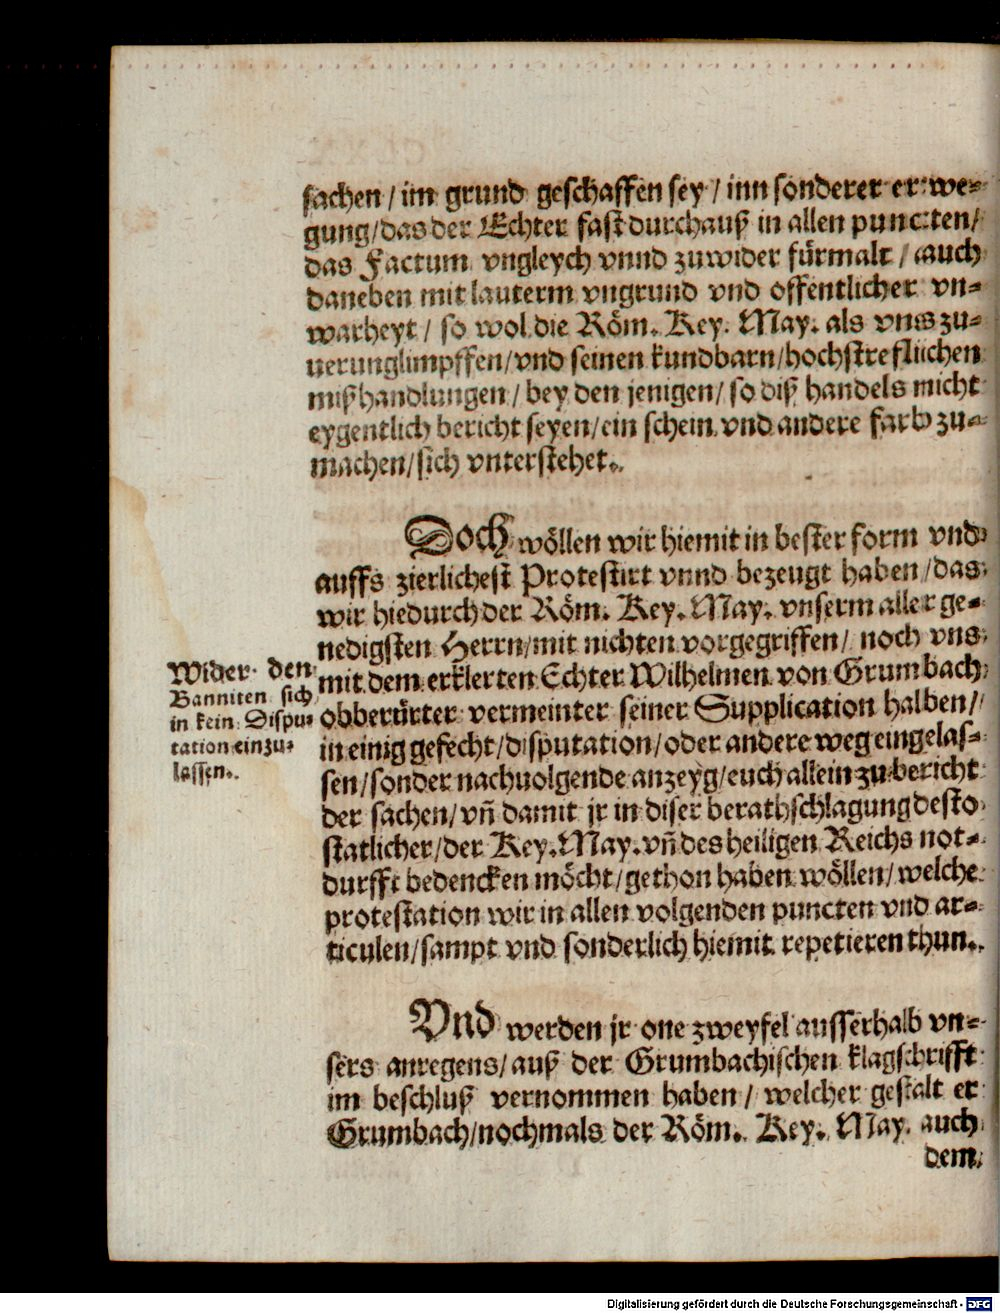 sachen / im grund geschaffen sey / inn sonderer erwe⸗
gung/das der Echter fast durchauß in allen puncten/
das Factum vngleych vnnd zuwider fürmalt / auch
daneben mit lauterm vngrund vnd offentlicher vn⸗
warheyt / so wol die Röm. Key. May. als vns zu⸗
uerunglimpffen/vnd seinen kundbarn/hochstreflichen
mißhandlungen / bey den jenigen/ so diß handels nicht
eygentlich bericht seyen/ein schein vnd andere farb zu⸗
machen/sich vnterstehet.
Doch wöllen wir hiemit in bester form vnd
auffs zierlichest Protestirt vnnd bezeugt haben /das
wir hiedurch der Röm. Key. May. vnserm aller ge⸗
nedigsten Herrn/mit nichten vorgegriffen/ noch vns
mit dem erklerten Echter Wilhelmen von Grumbach
obberürter vermeinter seiner Supplication halben/
in einig gefecht/disputation/oder andere weg eingelas⸗
sen/sonder nachuolgende anzeyg/euch allein zu bericht
der sachen/vñ damit jr in diser berathschlagung desto
statlicher/der Key. May. vñ des heiligen Reichs not⸗
durfft bedencken möcht/gethon haben wöllen/welche
protestation wir in allen volgenden puncten vnd ar⸗
ticulen/sampt vnd sonderlich hiemit repetieren thun.
Wider den
Banniten sich
in kein Dispu⸗
tation einzu⸗
lassen.
Vnd werden jr one zweyfel ausserhalb vn⸗
sers anregens/auß der Grumbachischen klagschrifft
im beschluß vernommen haben / welcher gestalt er
Grumbach/nochmals der Röm. Key. May. auch
dem
Digitalisierung gefördert durch die Deutsche Forschungsgemeinschaft - DFG